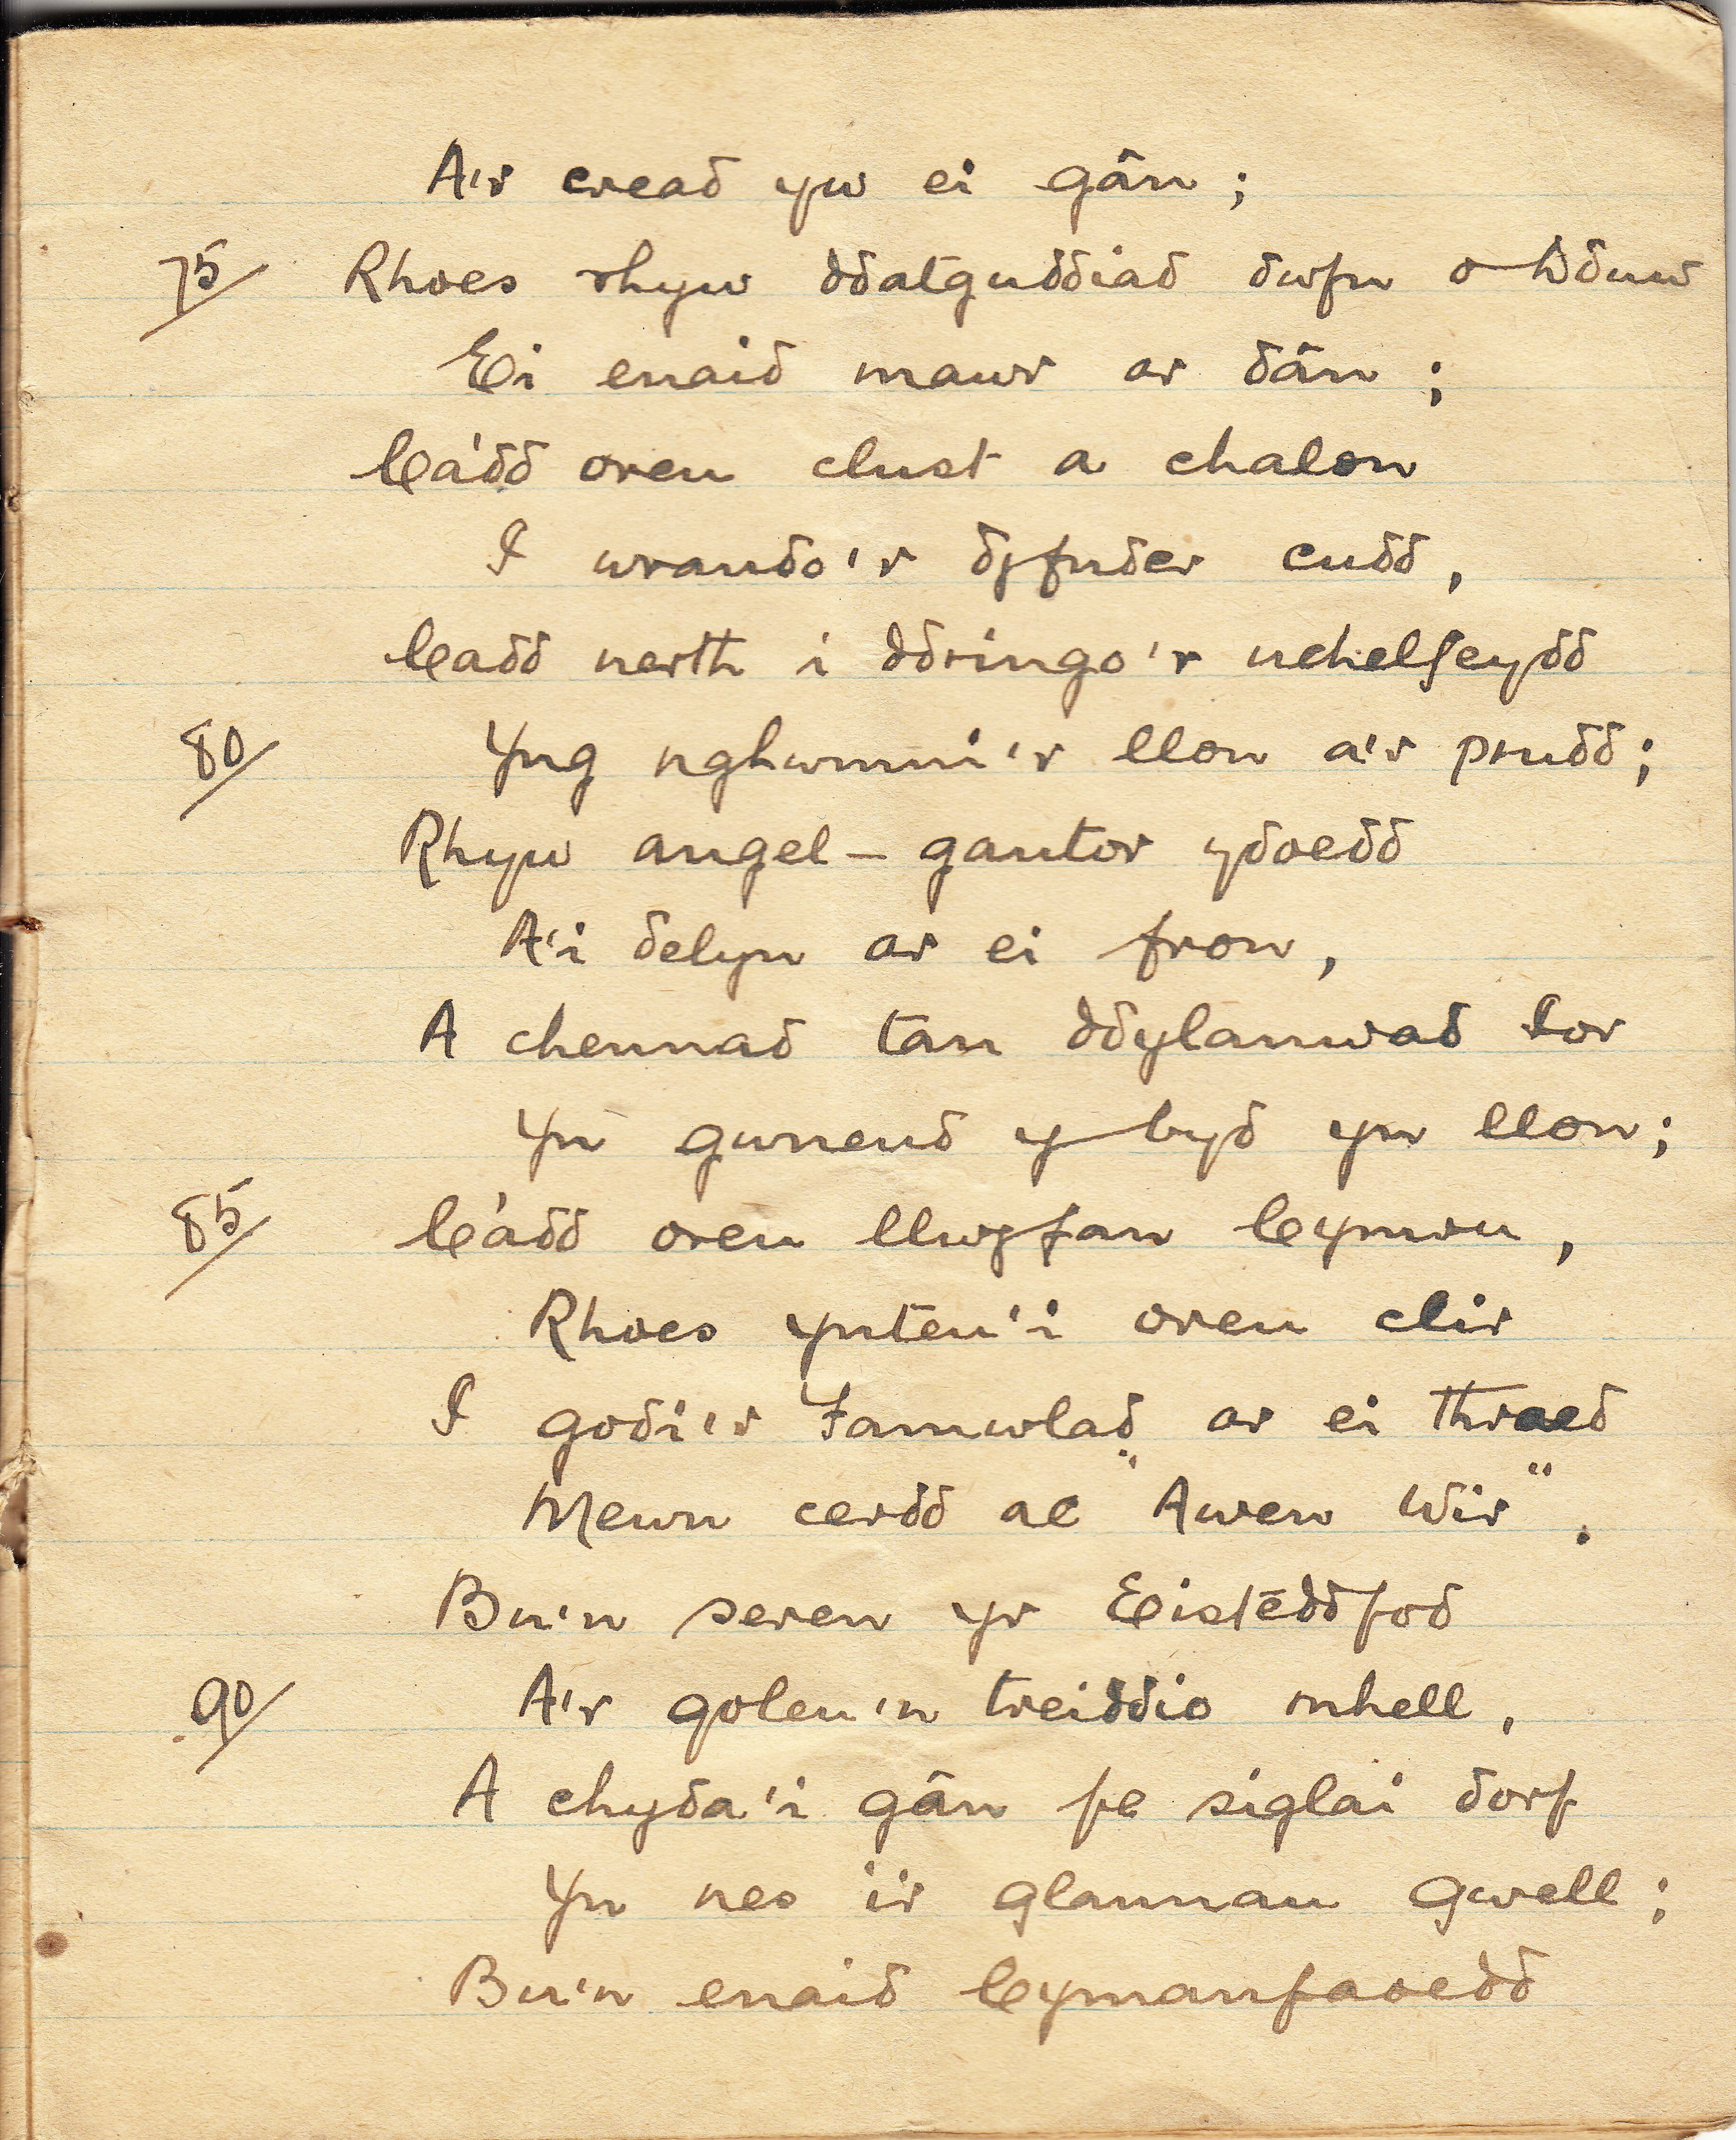 A'r cread yw ei gân;
75/ Rhoes rhyw ddatguddiad dwfn o Dduw
Ei enaid mawr ar dân;
Cádd oreu clust a chalon
I wrando'r dyfnder cudd,
Cadd nerth i ddringo'r uchelfeydd
80/ Yng nghwmni'r llon a'r prudd;
Rhyw angel-gantor ydoedd
A'i delyn ar ei fron,
A chennad tan ddylanwad Ior
Yn gwneud y byd yn llon;
85/ Cádd oreu llwyfan Cymru,
Rhoes ynteu'i oreu clir
I godi'r Famwlad ar ei thraed
Mewn cerdd ac "Awen Wir".
Bu'n seren yr Eistēddfod
90/ A'r goleu'n treiddio mhell,
A chyda'i gân fe siglai dorf
Yn nes i'r glannau gwell;
Bu'n enaid Cymanfaoedd